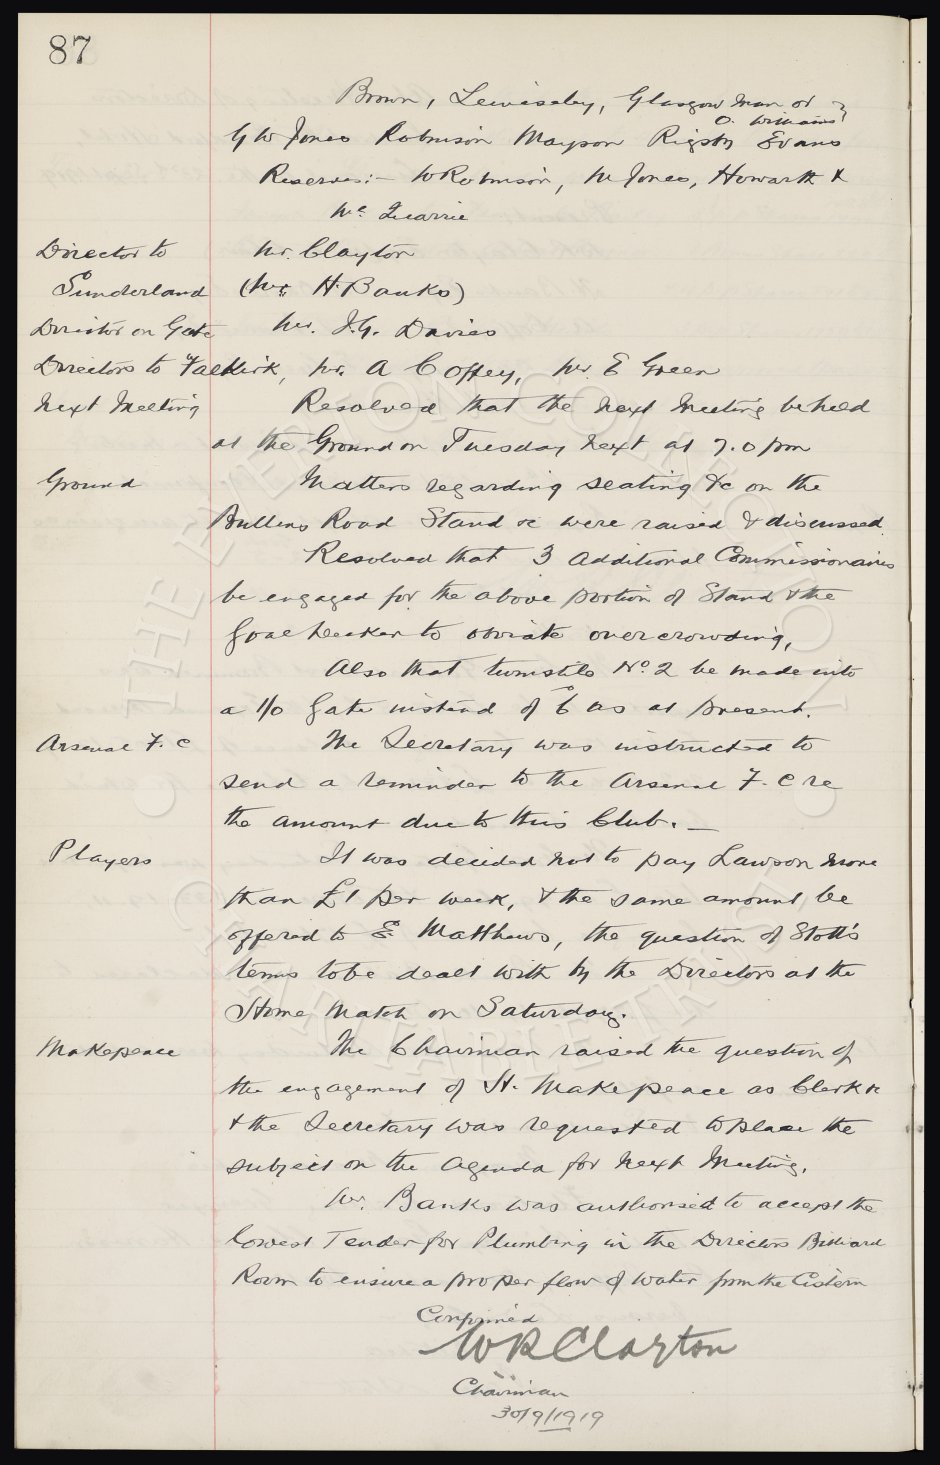 87
Brown, Lewiseley, Glasgow man or }
O. Williams
G W Jones Robinson Mayson Rigsby Evans
Reserves:- W Robinson, W Jones, Howarth &
Mc Quarrie
Director to Mr. Clayton
Sunderland (Mr. H. Banks)
Director on Gate Mr. J.G. Davies
Directors to Falkirk, Mr. A Coffey, Mr. E Green
Next Meeting Resolved that the next Meeting be held
at the Ground on Tuesday next at 7.0 pm
Ground Matters regarding seating &c on the
Bullens Road Stand &c were raised & discussed.
Resolved that 3 additional Commissionaires
be engaged for the above portion of Stand & the
Goal to obviate overcrowding,
Also that turnstile No. 2 be made into
a 1/0 Gate instead of 6 as at present.
Arsenal F. C The Secretary was instructed to
send a reminder to the Arsenal F. C re
the amount due to this Club. —
Players It was decided not to pay Lawson more
than £1 per week, & the same amount be
offered to E Matthews, the question of Stott's
terms to be dealt with by the Directors at the
Home Match on Saturday.
Makepeace The Chairman raised the question of
the engagement of H. Makepeace as Clerk &c
& the Secretary was requested to place the
subject on the Agenda for next Meeting.
Mr. Banks was authorised to accept the
lowest Tender for Plumbing in the Directors Billiard
Room to ensure a proper flow of water from the Cistern
Confirmed
WR Clayton
Chairman
30/9/1919
THE EVERTON COLLECTION